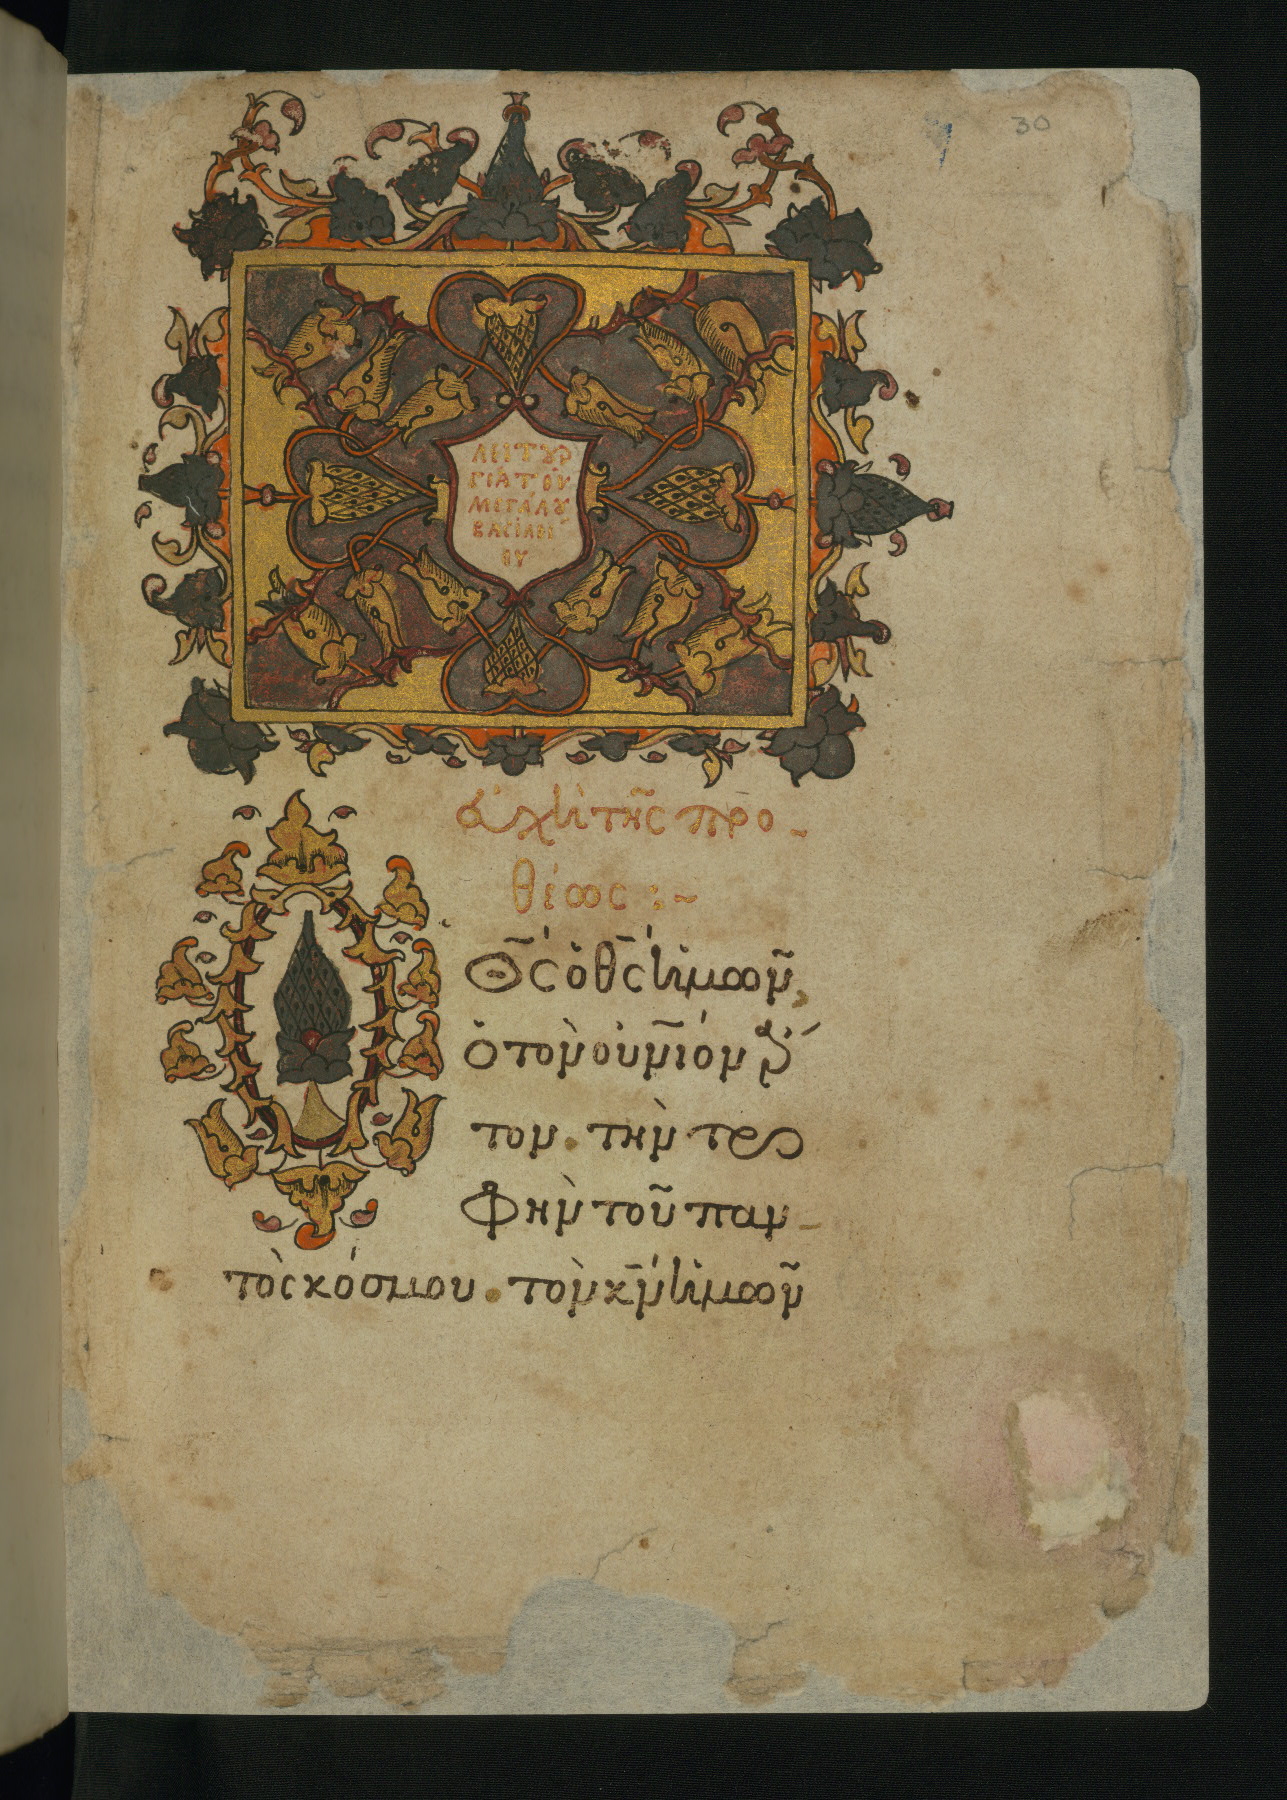 30
ΛΕΙΤΥΡ
ΓΙΑ ΤΟΥ
ΜΕΓΑΛΟΥ
ΒΑΣΙΛΕΙ
ΟΥ
εὐχὴ τῆς προ-
θέσεως :~
Θ̅ς̅ ὁ θ̅ς̅ ἡμῶν,
ὁ τὸν οὐν̅ιόν ἄρ
τον . τὴν τρο
φὴν τοῦ παν-
τὸς κόσμου . τὸν κ̅ν̅ ἡμῶν